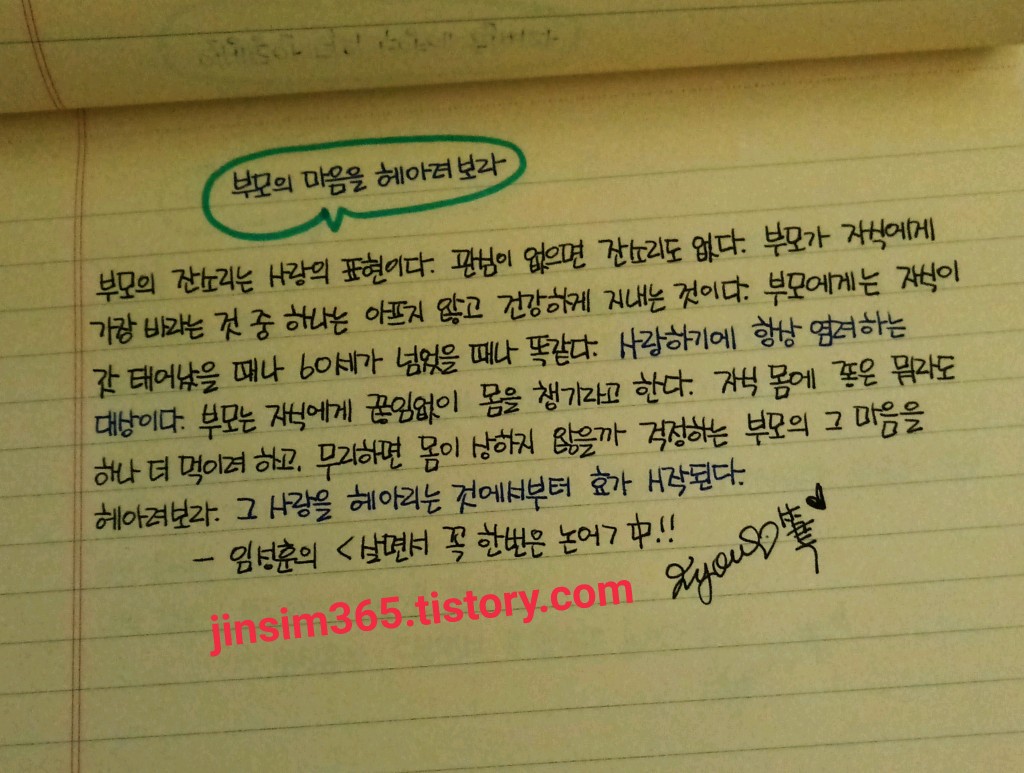 부모의 마음을 헤아려보라
부모의 잔소리는 사랑의 표현이다. 관심이 없으면 잔소리도 없다. 부모가 자식에게
가장 바라는 것 중 하나는 아프지 않고 건강하게 지내는 것이다. 부모에게는 자식이
갓 태어났을 때나 60세가 넘었을 때나 똑같다. 사랑하기에 항상 염려하는
대상이다. 부모는 자식에게 끊임없이 몸을 챙기라고 한다. 자식 몸에 좋은 뭐라도
하나 더 먹이려 하고, 무리하면 몸이 상하지 않을까 걱정하는 부모의 그 마음을
헤아려보라. 그 사랑을 헤아리는 것에서부터 효가 시작된다.
- 임성훈의 <살면서 꼭 한번은 논어> 中.!!
jinsim365.tistory.com